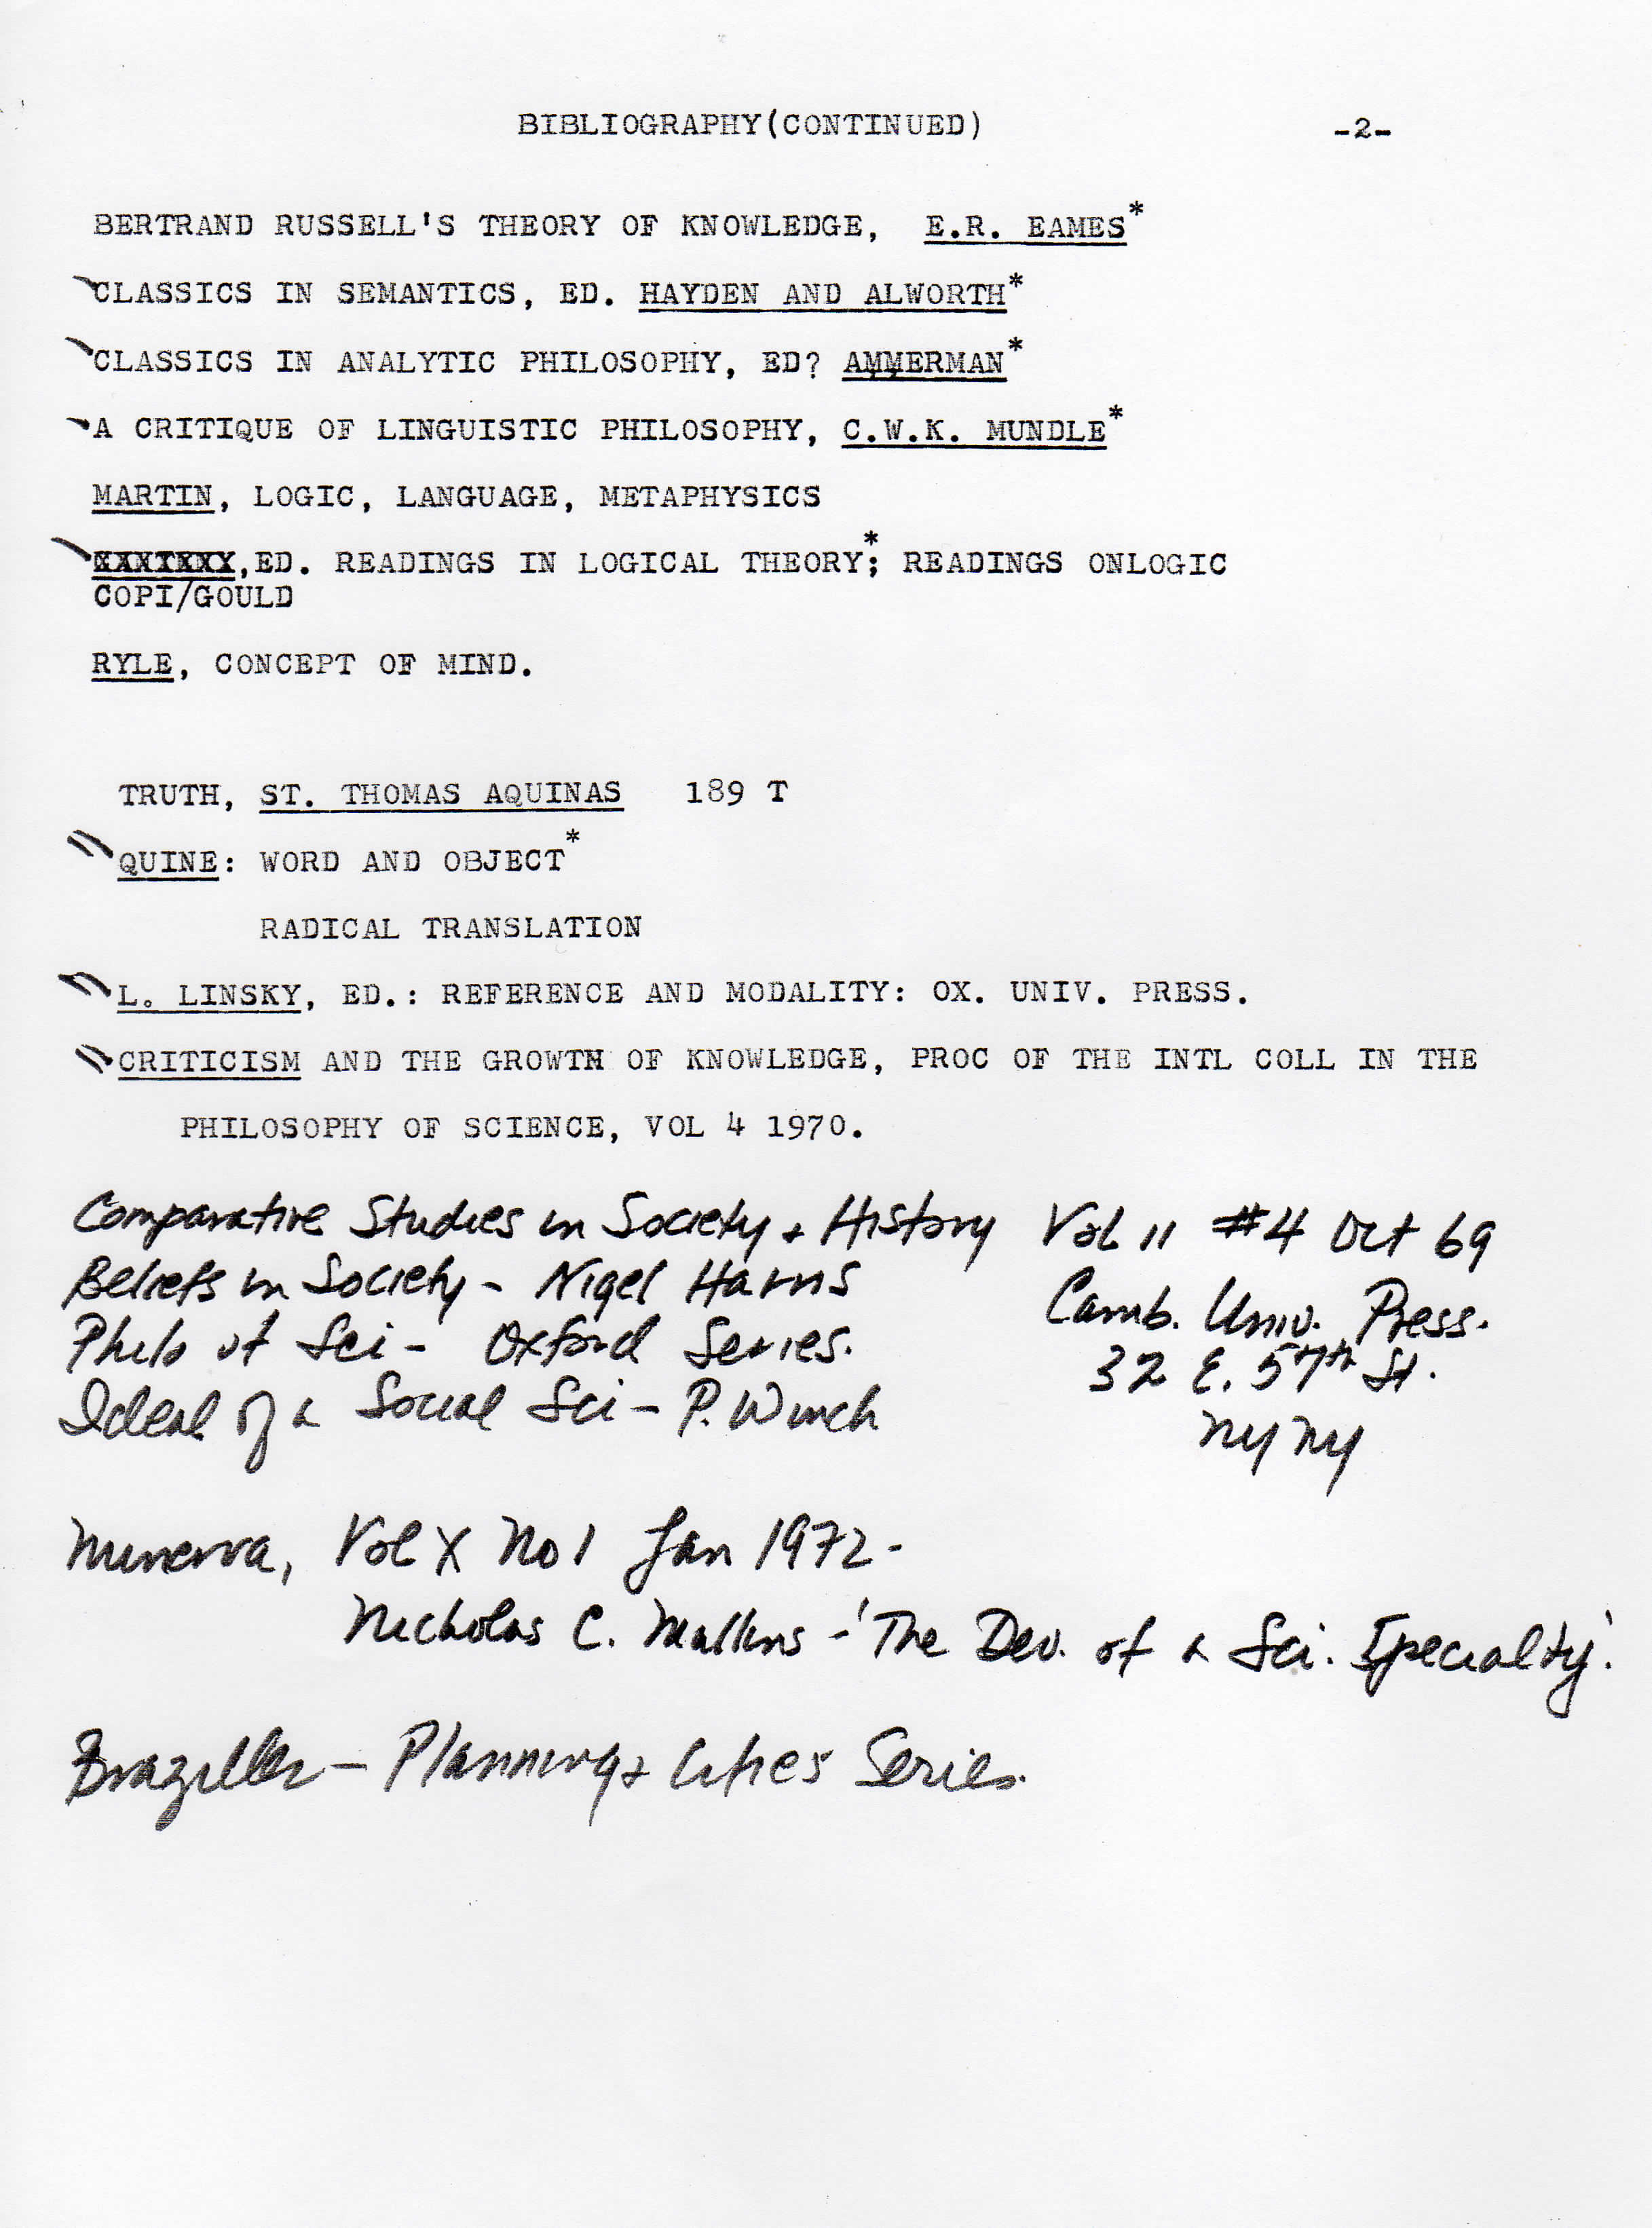 BIBLIOGRAPHY(CONTINUED) -2-
BERTRAND RUSSELL'S THEORY OF KNOWLEDGE, E.R. EAMES*
CLASSICS IN SEMANTICS, ED. HAYDEN AND ALWORTH*
CLASSICS IN ANALYTIC PHILOSOPHY, ED? AMMERMAN*
A CRITIQUE OF LINGUISTIC PHILOSOPHY, C.W.K. MUNDLE*
MARTIN, LOGIC, LANGUAGE, METAPHYSICS
XXXXXXX,ED. READINGS IN LOGICAL THEORY*; READINGS ONLOGIC
COPI/GOULD
RYLE, CONCEPT OF MIND.
TRUTH, ST. THOMAS AQUINAS 189 T
QUINE: WORD AND OBJECT*
RADICAL TRANSLATION
L. LINSKY, ED.: REFERENCE AND MODALITY: OX. UNIV. PRESS.
CRITICISM AND THE GROWTH OF KNOWLEDGE, PROC OF THE INTL COLL IN THE
PHILOSOPHY OF SCIENCE, VOL 4 1970.
Comparative Studies in Society + History Vol 11 #4 Oct 69
Beliefs in Society - Nigel Harris Camb. Univ. Press.
Philo of Sci - Oxford Series. 32 E. 57th St.
Ideal of a Social Sci - P. Winch NY NY
Minerva, Vol X No 1 Jan 1972 -
Nicholas C. Mullins - 'The Dev. of a Sci. Specialty'.
Braziller - Planning + Cities Series.